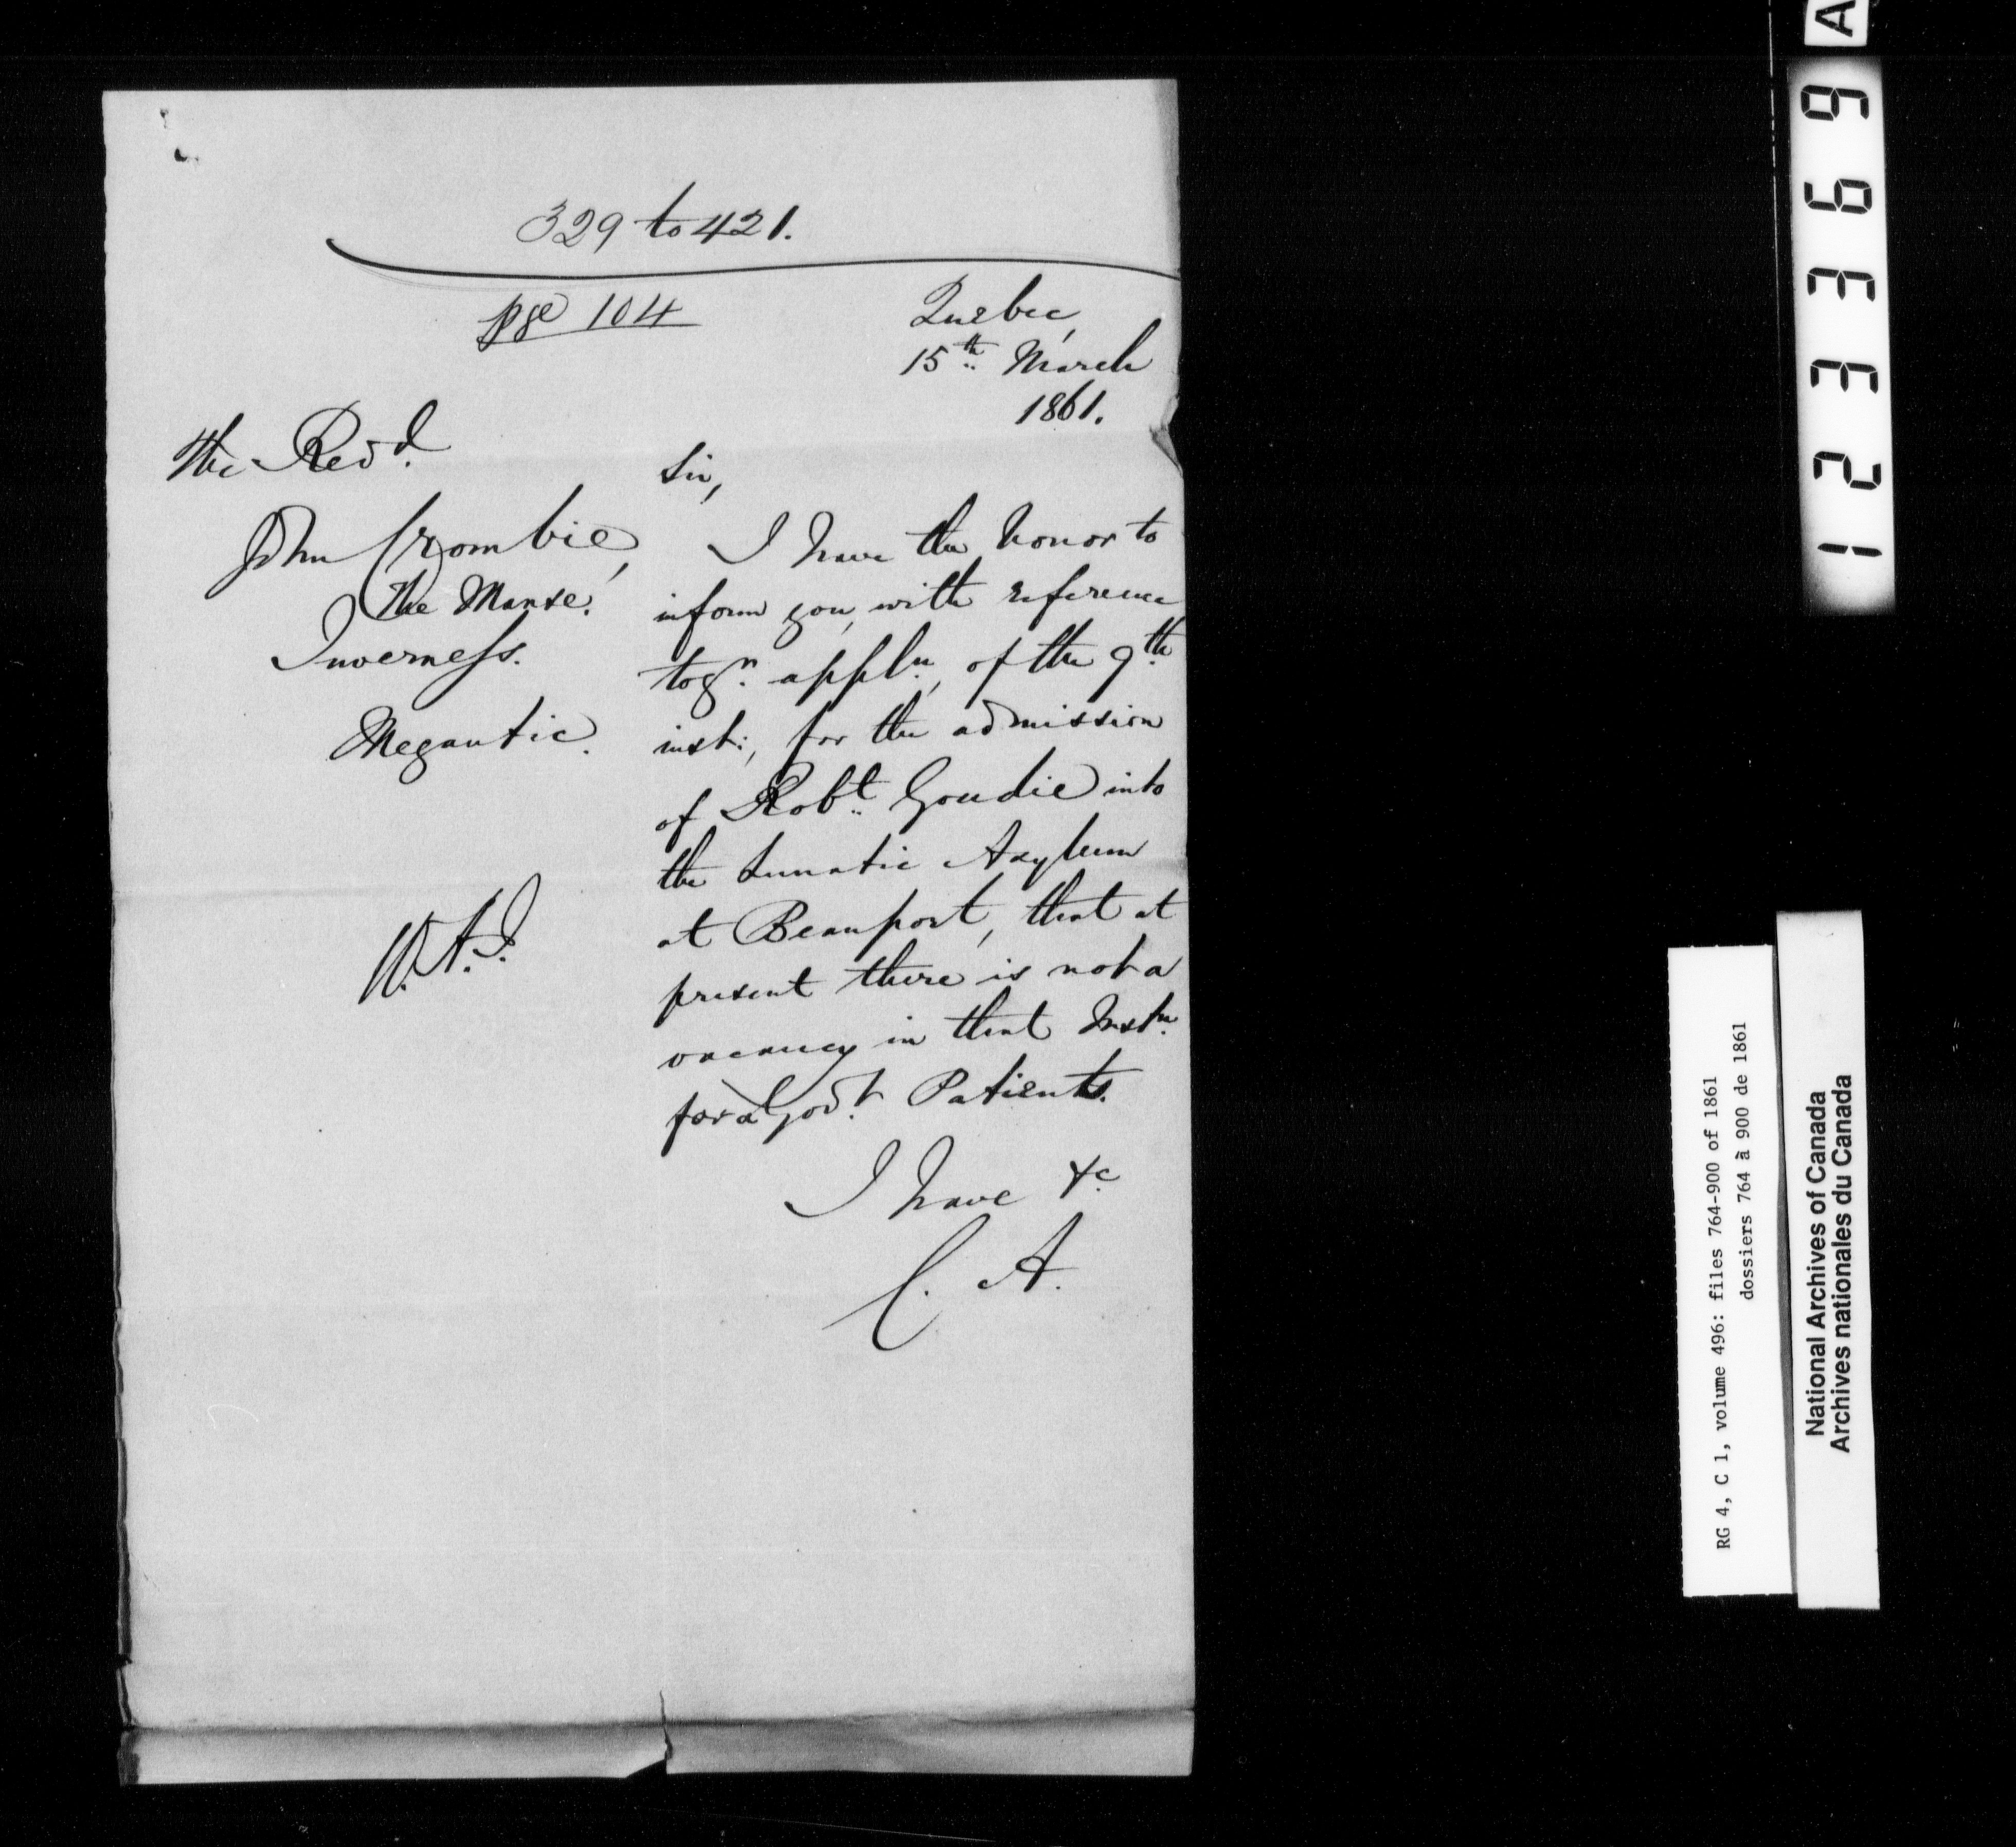 329 to 421.
pge 104
Quebec,
15th March
1861.
The Revd.
John Crombie,
The Manse.
Inverness.
Megantic.
W.A.
Sir,
I have the honor to
inform you, with reference
to yr. appln., of the 9th
inst:, for the admission
of Robt. Goudie into
the Lunatic Asylum
at Beauport, that at
present there is not a
vacancy in that Instn.
for a Govt. Patients.
I have &c
C. A.
RG 4, C 1, volume 496: files 764-900 of 1861
dossiers 764 à 900 de 1861
National Archives of Canada
Archives nationales du Canada
123369 A